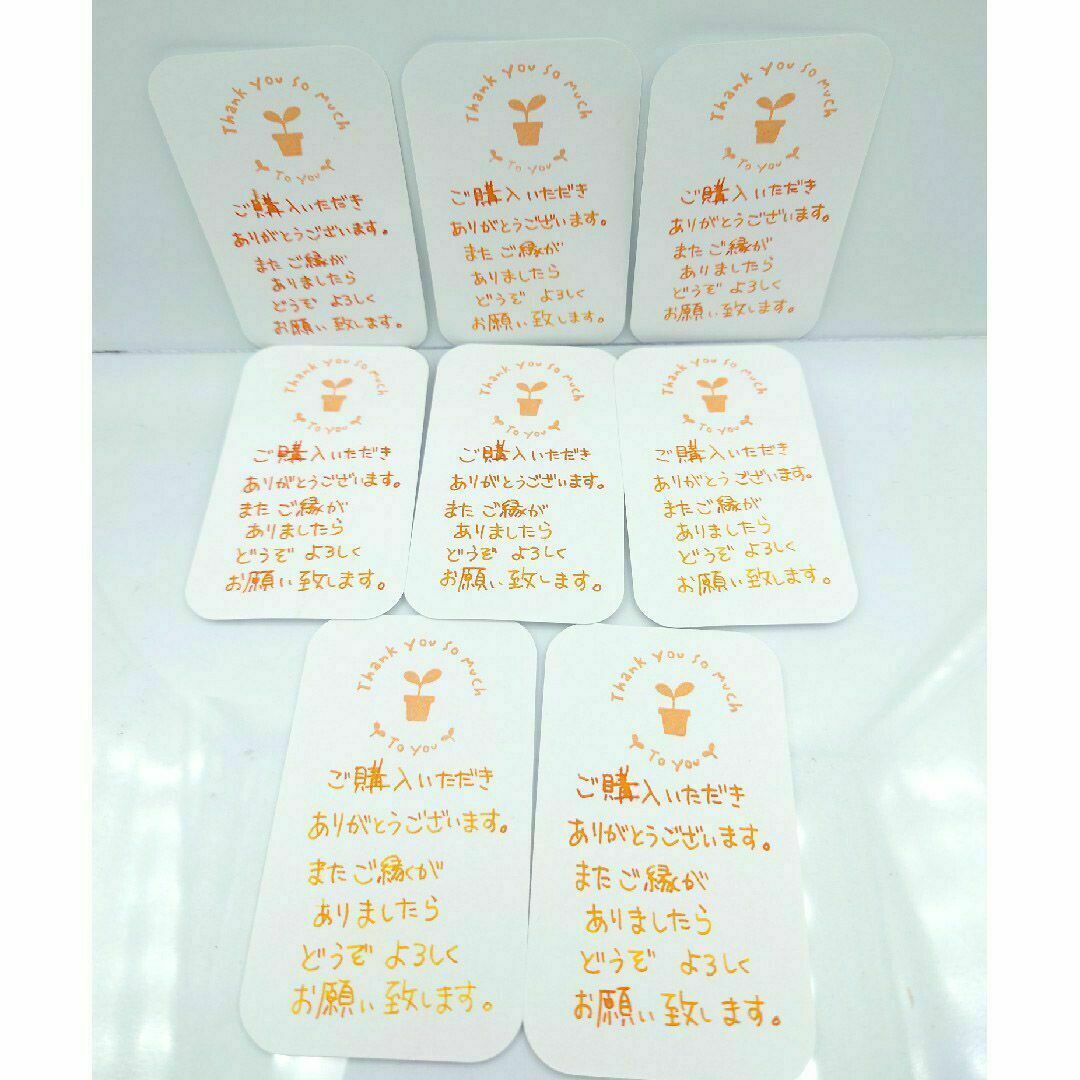 Thank You So Much
To You
ご購入いただき
ありがとうございます。
また ご縁が
ありましたら
どうぞ よろしく
お願い致します。
Thank You So Much
To You
ご購入いただき
ありがとうございます。
また ご縁が
ありましたら
どうぞ よろしく
お願い致します。
Thank You So Much
To You
ご購入いただき
ありがとうございます。
また ご縁が
ありましたら
どうぞ よろしく
お願い致します。
Thank You So Much
To You
ご購入いただき
ありがとうございます。
また ご縁が
ありましたら
どうぞ よろしく
お願い致します。
Thank You So Much
To You
ご購入いただき
ありがとうございます。
また ご縁が
ありましたら
どうぞ よろしく
お願い致します。
Thank You So Much
To You
ご購入いただき
ありがとうございます。
また ご縁が
ありましたら
どうぞ よろしく
お願い致します。
Thank You So Much
To You
ご購入いただき
ありがとうございます。
また ご縁が
ありましたら
どうぞ よろしく
お願い致します。
Thank You So Much
To You
ご購入いただき
ありがとうございます。
また ご縁が
ありましたら
どうぞ よろしく
お願い致します。